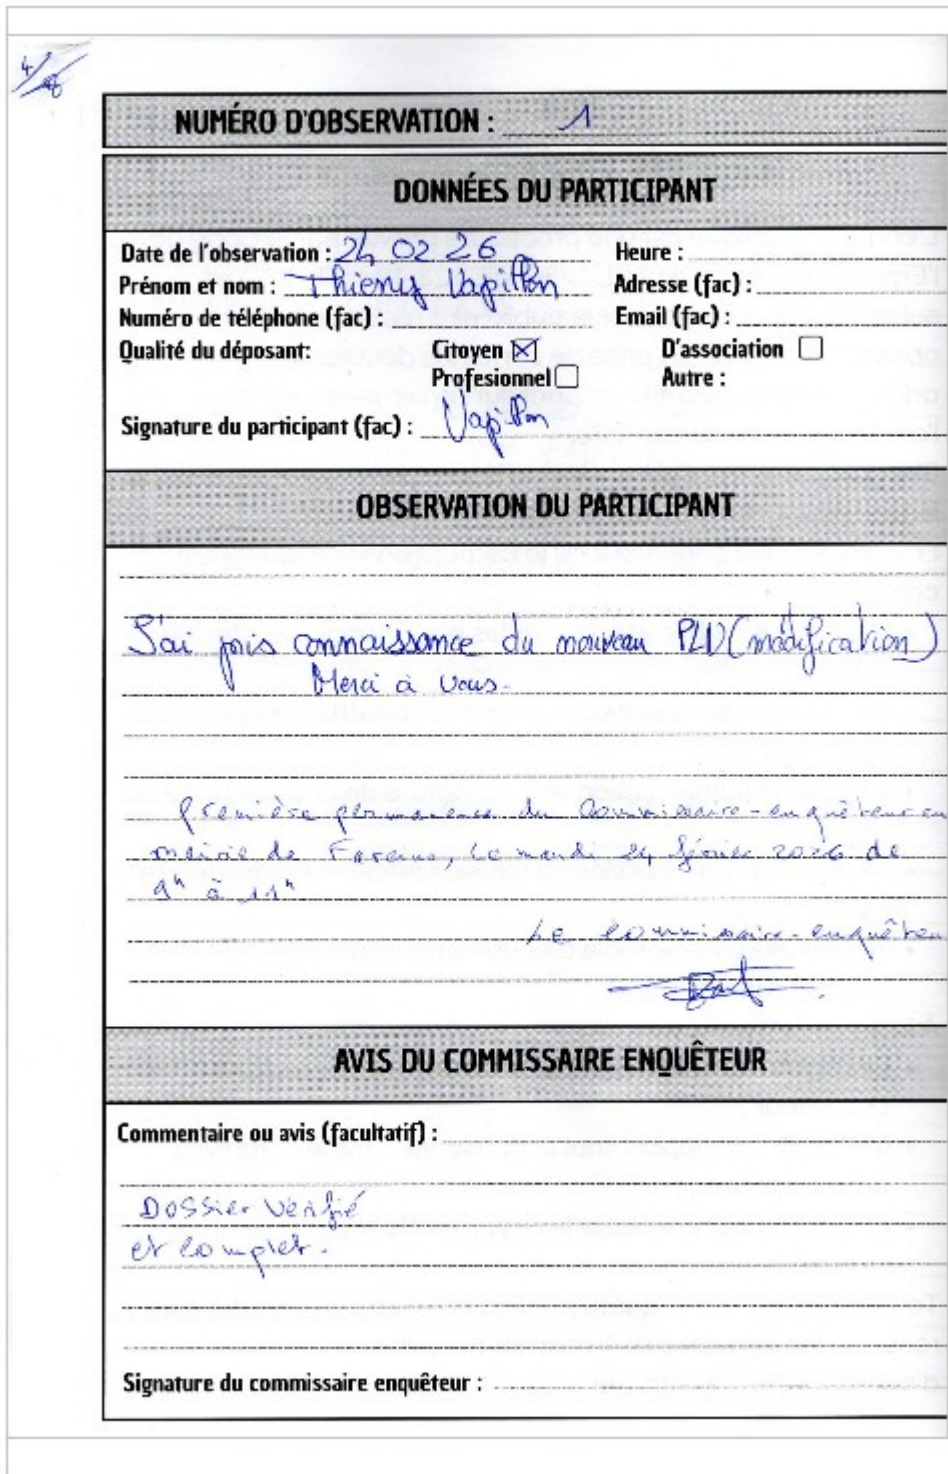 NUMÉRO D'OBSERVATION : 1
DONNÉES DU PARTICIPANT
Date de l'observation : 24 02 26 Heure :
Prénom et nom : Thierry Vapillon Adresse (fac) :
Numéro de téléphone (fac) : Email (fac) :
Qualité du déposant: Citoyen ☒ D'association ☐
Profesionnel ☐ Autre :
Signature du participant (fac) : Vapillon
OBSERVATION DU PARTICIPANT
J'ai pris connaissance du nouveau PLU (modification)
Merci à vous.
Première permanence du Commissaire-enquêteur en
mairie de le mardi 24 février 2026 de
9h à 11h
Le commissaire-enquêteu
AVIS DU COMMISSAIRE ENQUÊTEUR
Commentaire ou avis (facultatif) :
Dossier vérifié
et complet.
Signature du commissaire enquêteur :